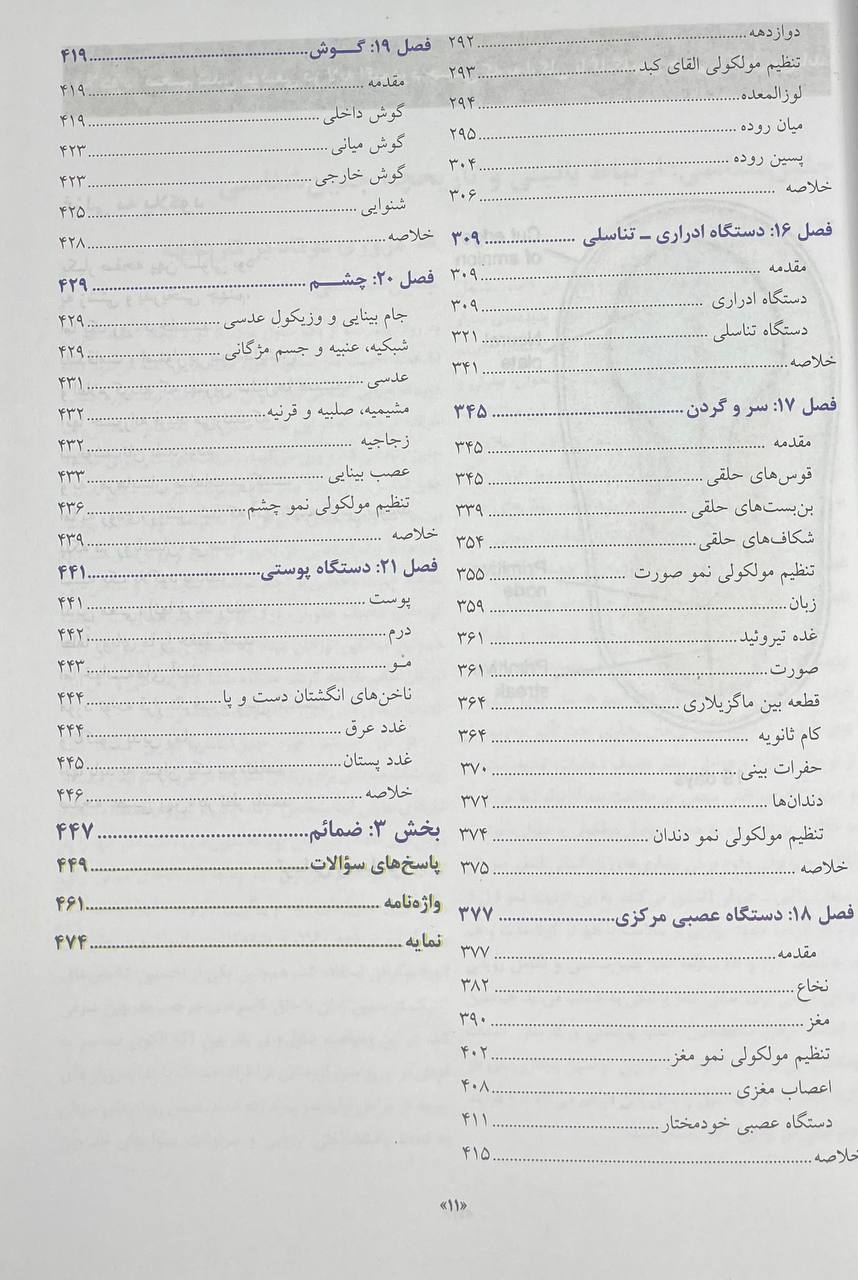 دوازدهه ........ ۲۹۲
تنظیم مولکولی القای کبد ........ ۲۹۳
لوزالمعده ........ ۲۹۴
میان روده ........ ۲۹۵
پسین روده ........ ۳۰۴
خلاصه ........ ۳۰۶
فصل ۱۶: دستگاه ادراری ـ تناسلی ........ ۳۰۹
مقدمه ........ ۳۰۹
دستگاه ادراری ........ ۳۰۹
دستگاه تناسلی ........ ۳۲۱
خلاصه ........ ۳۴۱
فصل ۱۷: سر و گردن ........ ۳۴۵
مقدمه ........ ۳۴۵
قوس‌های حلقی ........ ۳۴۵
بن‌بست‌های حلقی ........ ۳۳۹
شکاف‌های حلقی ........ ۳۵۴
تنظیم مولکولی نمو صورت ........ ۳۵۵
زبان ........ ۳۵۹
غده تیروئید ........ ۳۶۱
صورت ........ ۳۶۱
قطعه بین ماگزیلاری ........ ۳۶۴
کام ثانویه ........ ۳۶۴
حفرات بینی ........ ۳۷۰
دندان‌ها ........ ۳۷۲
تنظیم مولکولی نمو دندان ........ ۳۷۴
خلاصه ........ ۳۷۵
فصل ۱۸: دستگاه عصبی مرکزی ........ ۳۷۷
مقدمه ........ ۳۷۷
نخاع ........ ۳۸۲
مغز ........ ۳۹۰
تنظیم مولکولی نمو مغز ........ ۴۰۲
اعصاب مغزی ........ ۴۰۸
دستگاه عصبی خودمختار ........ ۴۱۱
خلاصه ........ ۴۱۵
فصل ۱۹: گـــوش ........ ۴۱۹
مقدمه ........ ۴۱۹
گوش داخلی ........ ۴۱۹
گوش میانی ........ ۴۲۳
گوش خارجی ........ ۴۲۳
شنوایی ........ ۴۲۵
خلاصه ........ ۴۲۸
فصل ۲۰: چشـــم ........ ۴۲۹
جام بینایی و وزیکول عدسی ........ ۴۲۹
شبکیه، عنبیه و جسم مژگانی ........ ۴۲۹
عدسی ........ ۴۳۱
مشیمیه، صلبیه و قرنیه ........ ۴۳۲
زجاجیه ........ ۴۳۲
عصب بینایی ........ ۴۳۳
تنظیم مولکولی نمو چشم ........ ۴۳۶
خلاصه ........ ۴۳۹
فصل ۲۱: دستگاه پوستی ........ ۴۴۱
پوست ........ ۴۴۱
درم ........ ۴۴۲
مـو ........ ۴۴۳
ناخن‌های انگشتان دست و پا ........ ۴۴۴
غدد عرق ........ ۴۴۴
غدد پستان ........ ۴۴۵
خلاصه ........ ۴۴۶
بخش ۳: ضمائم ........ ۴۴۷
پاسخ‌های سؤالات ........ ۴۴۹
واژه‌نامه ........ ۴۶۱
نمایه ........ ۴۷۴
«۱۱»